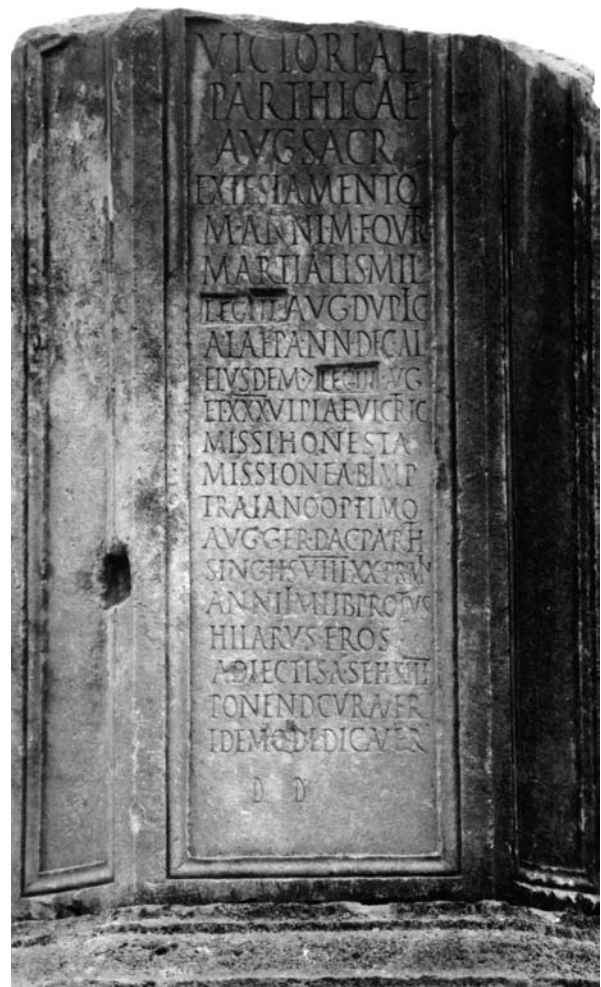 VICTORIAE
PARTHICAE
AVG SACR
EX TESTAMENTO
M ANNI M F QVIR
MARTIALIS MIL
LEG III AVG DVPLIC
ALAE PANN DEC AL
EIVSDEM 7 LEG III AVG
ET XXX VLPIAE VICTRIC
MISSI HONESTA
MISSIONE AB IMP
TRAIANO OPTIMO
AVG GER DAC PARTH
SING HS VIII XX P R MIN
ANNII M LIB PROTVS
HILARVS EROS
ADIECTIS A SE HS IIII
PONEND CVRAVER
IDEMQ DEDICAVER
D D